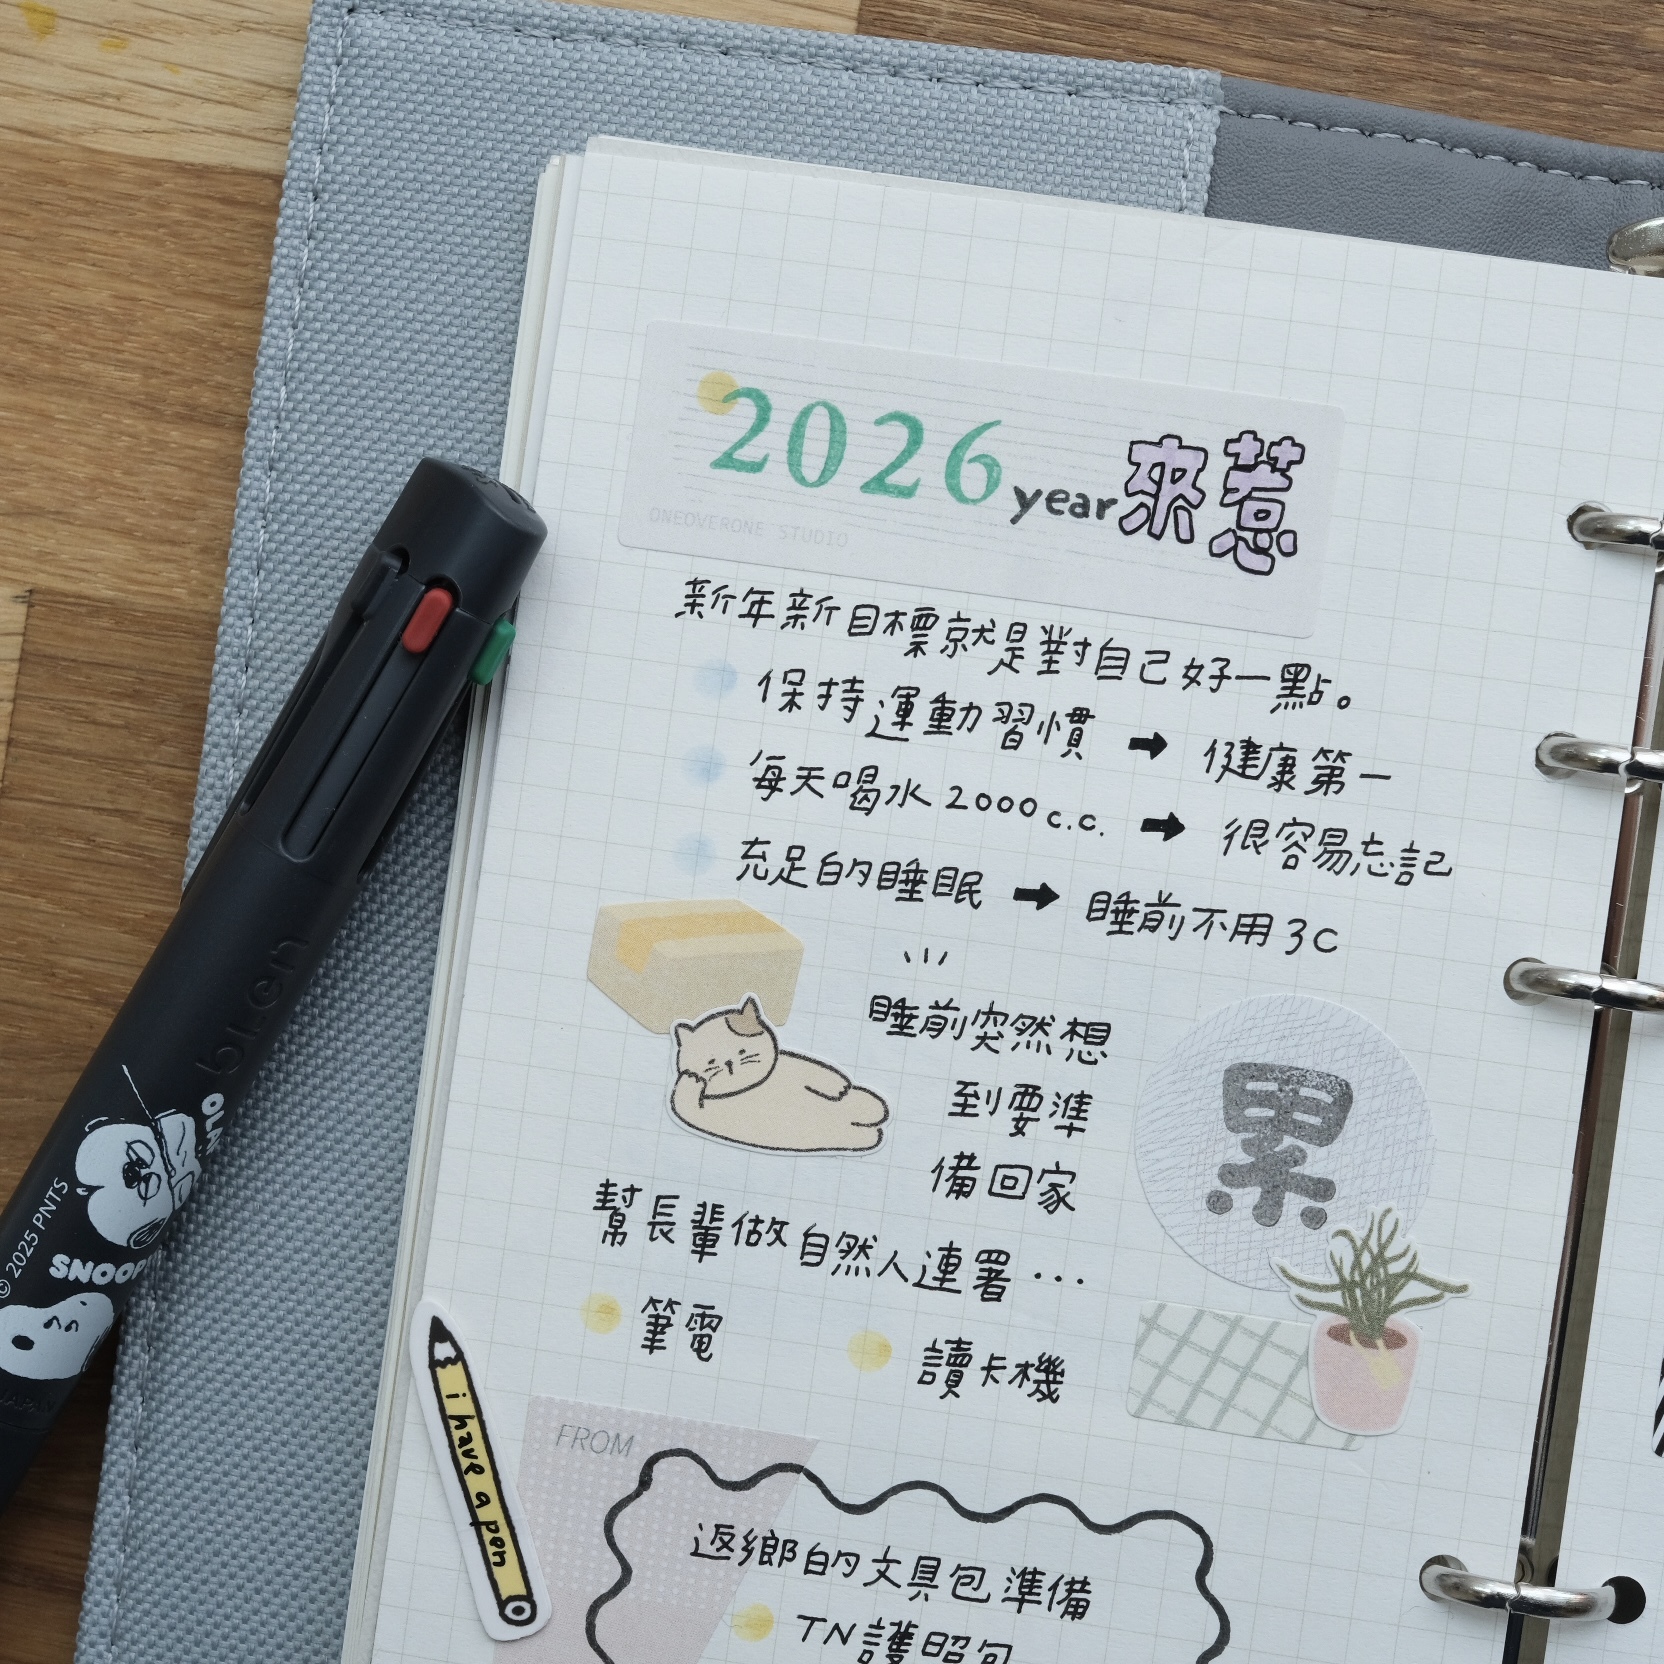 2026 year 來惹
ONEOVERONE STUDIO
新年新目標就是對自己好一點。
保持運動習慣 ➡ 健康第一
每天喝水 2000 c.c. ➡ 很容易忘記
充足的睡眠 ➡ 睡前不用 3C
睡前突然想
到要準
備回家
累
幫長輩做自然人連署…
筆電
讀卡機
i have a pen
FROM
返鄉的文具包準備
TN護照包
blen
© 2025 PNTS
SNOOP
JAPAN